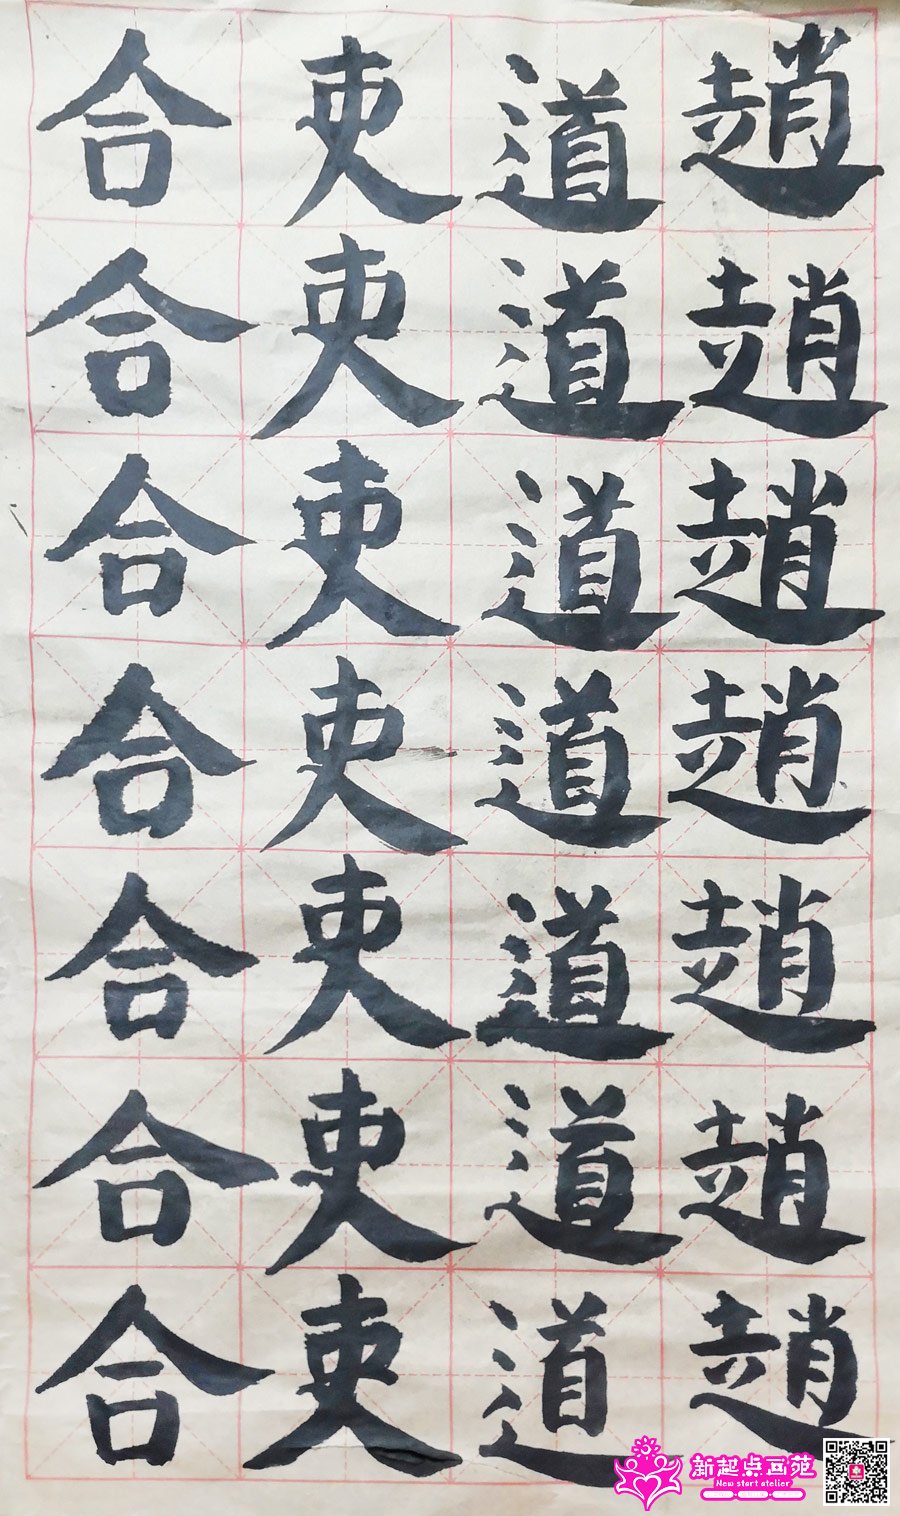 趙趙趙趙趙趙趙
道道道道道道道
吏吏吏吏吏吏吏
合合合合合合合
新起点画苑
New start atelier